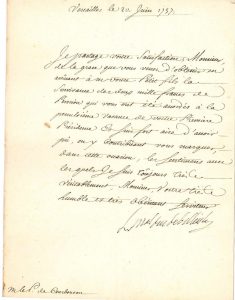 Versailles le 20 Juin 1757.
Je partage votre Satisfaction, Monsieur,
de la grace que vous venez d'obtenir en
faisant à votre Petit fils la
Survivance de deux mille francs de
Pension qui vous ont été accordés à la
première vacance de votre Première
Présidence. Je suis fort aise d'avoir
pû, en y contribuant vous marquer
dans cette occasion, les Sentimens avec
lesquels Je suis toujours très
véritablement, Monsieur, Votre très
humble et très obéissant serviteur
M. le P. de